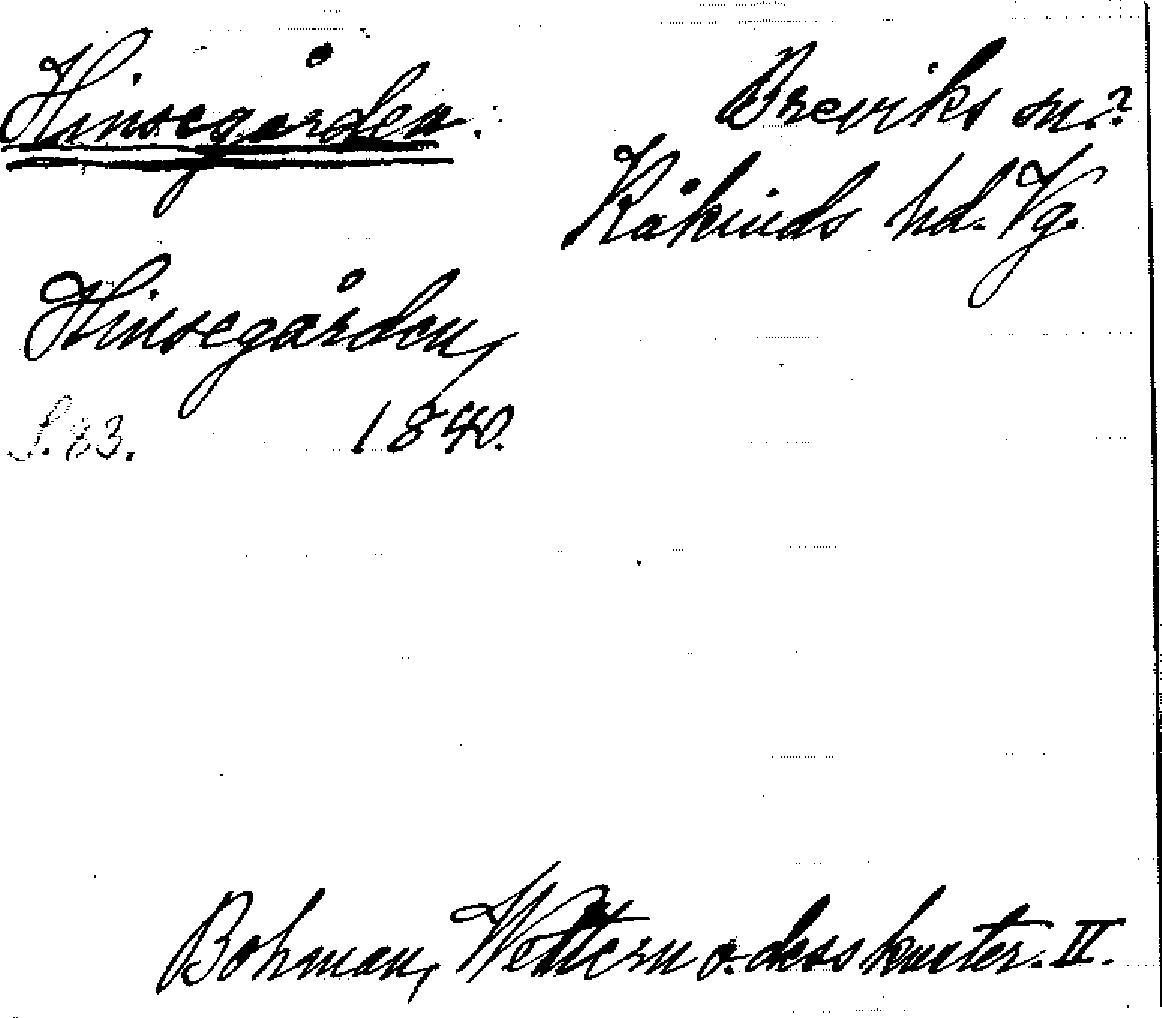 Hinsegården. Breviks sn.?
Kåkinds hd. Vg.
Hinsegården,
S. 83. 1840.
Bohman, Wettern o. dess kuster. II.